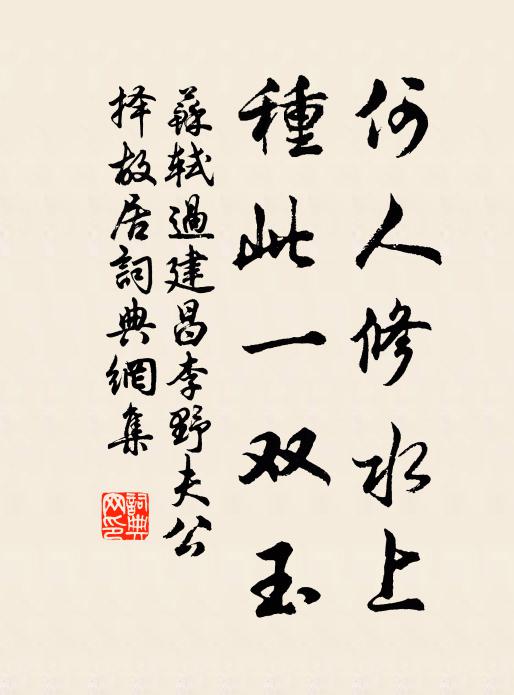 何人修水上
種此一双玉
蘇軾過建昌李野夫公
择故居詞典網集
詞典网印